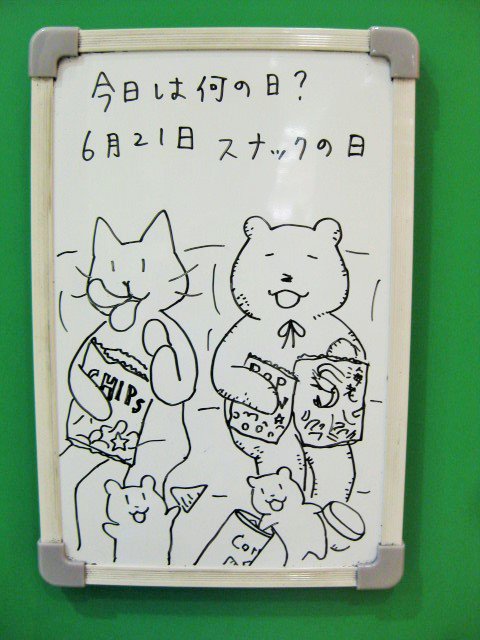 今日は何の日?
6月21日 スナックの日
CHIPS
POP
海老
Cor